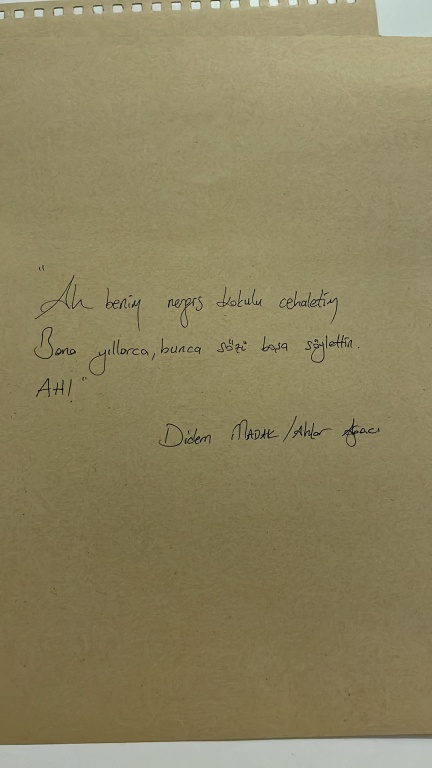 "Ah benim nergis kokulu cehaletim
Bana yıllarca, bunca sözü boşa söylettin.
AH!"
Didem MADAK / Ahlar Ağacı